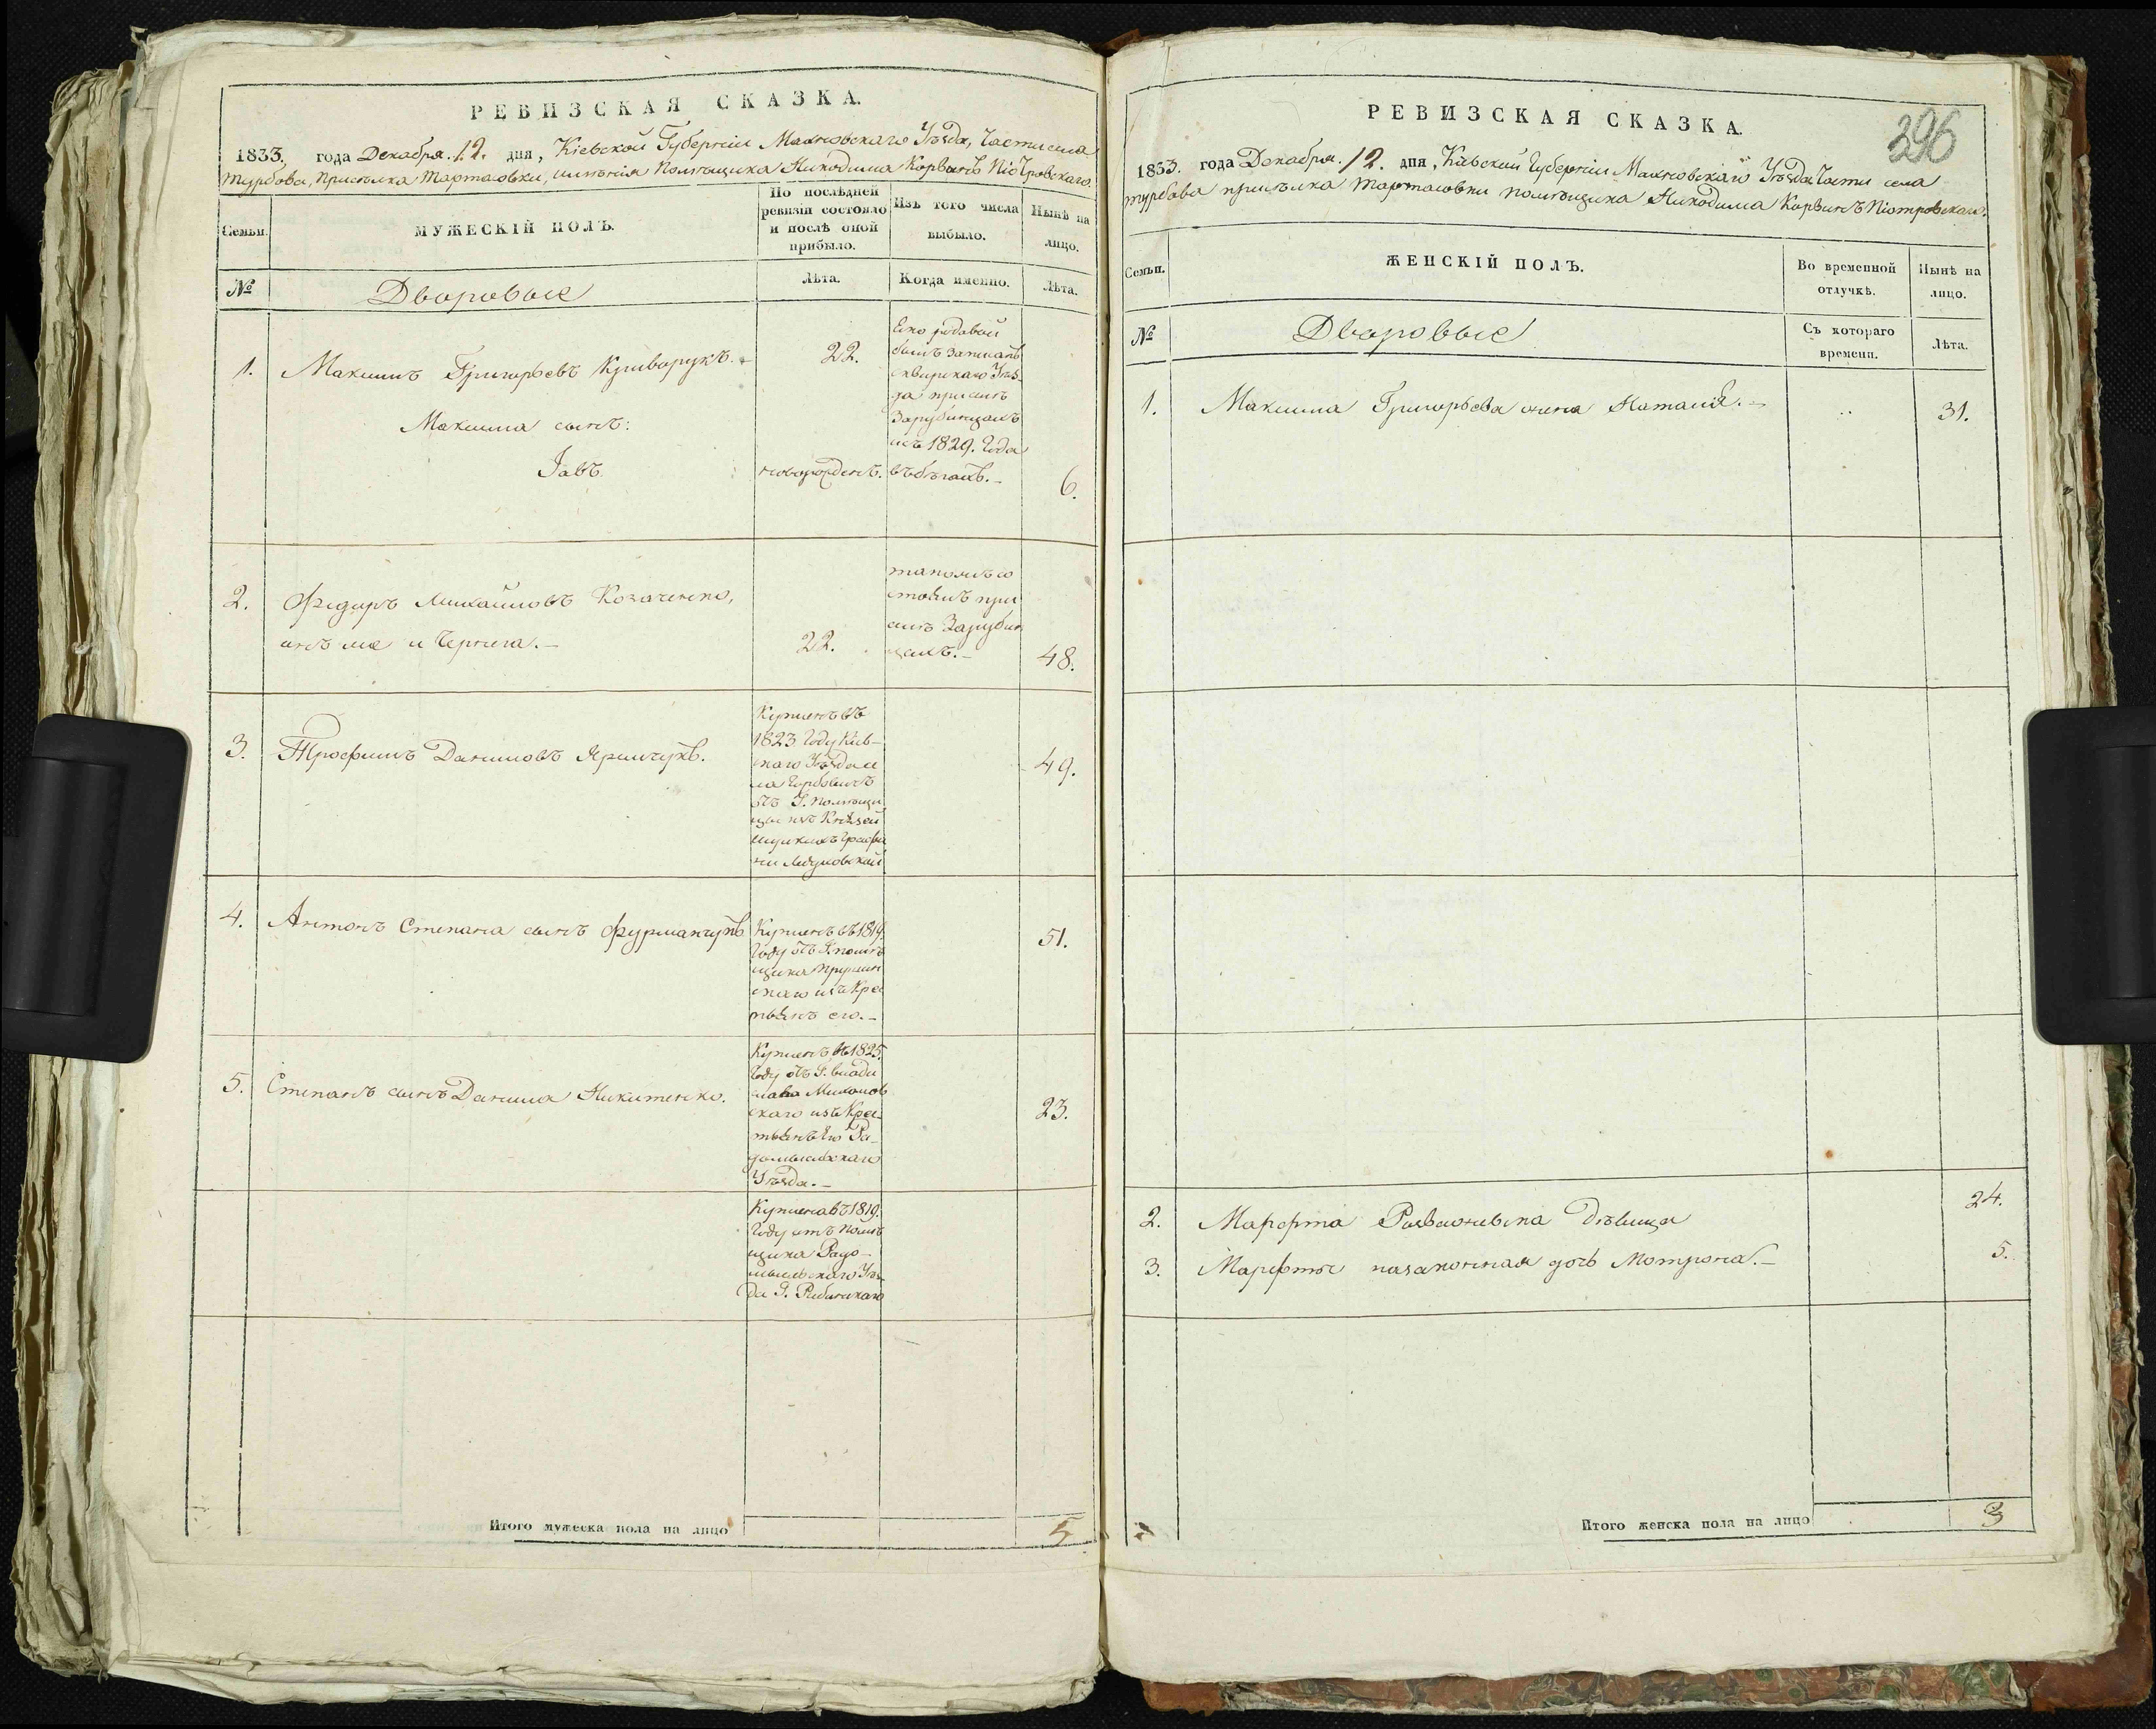 РЕВИЗСКАЯ СКАЗКА.
1833. года Декабря 12. дня, Кіевской Губерніи Махновскаго Уѣзда, Части села
Турбова, присѣлка Тартасовки, имѣнія Помѣщика Никодима Корвинъ Піотровскаго.
Семьи.
МУЖЕСКІЙ ПОЛЪ.
По послѣдней
ревизіи состояло
и послѣ оной
прибыло.
Изъ того числа
выбыло.
Нынѣ на
лицо.
№
Дворовые
Лѣта.
Когда именно.
Лѣта.
1.
Максимъ Григорьевъ Криворукъ.
22.
былъ записанъ
сквирскаго Уѣз-
да
Зарубинцахъ
1829. Года
въ бѣгахъ.
Максима сынъ:
Іавъ
новорожденъ.
6.
2.
Федоръ Михайловъ Козаченко,
онъ же и Чернега.
22.
при
селѣ Зарубин
цахъ.
48.
3.
Трофимъ Даниловъ Яремчукъ.
Купленъ въ
1823 Году Кіев-
скаго Уѣзда се
ла
отъ Г. Помѣщи
цы изъ Князей
Графи
ни
49.
4.
Антонъ Степана сынъ Фурманчукъ
Купленъ въ 1819.
Году отъ Г. помѣ
щика
скаго изъ Крес
тьянъ его.
51.
5.
Степанъ сынъ Данила Никитенко.
Купленъ въ 1825.
Году отъ Г. Влади
слава
скаго изъ Крес
тьянъ Его Ра-
домысльскаго
Уѣзда.
23.
Куплена въ 1819.
Году отъ Помѣ
щика Радо-
мысльскаго Уѣз
да Г.
Итого мужеска пола на лицо
5
РЕВИЗСКАЯ СКАЗКА.
296
1833. года Декабря 12. дня, Кіевской Губерніи Махновскаго Уѣзда Части села
Турбова присѣлка Тартасовки помѣщика Никодима Корвинъ Піотровскаго.
Семьи.
ЖЕНСКІЙ ПОЛЪ.
Во временной
отлучкѣ.
Нынѣ на
лицо.
№
Дворовые
Съ котораго
времени.
Лѣта.
1.
Максима Григорьева жена Наталія.
31.
2.
Марфта дѣвица
24.
3.
Марфты незаконная дочь Мотрона.
5.
Итого женска пола на лицо
3